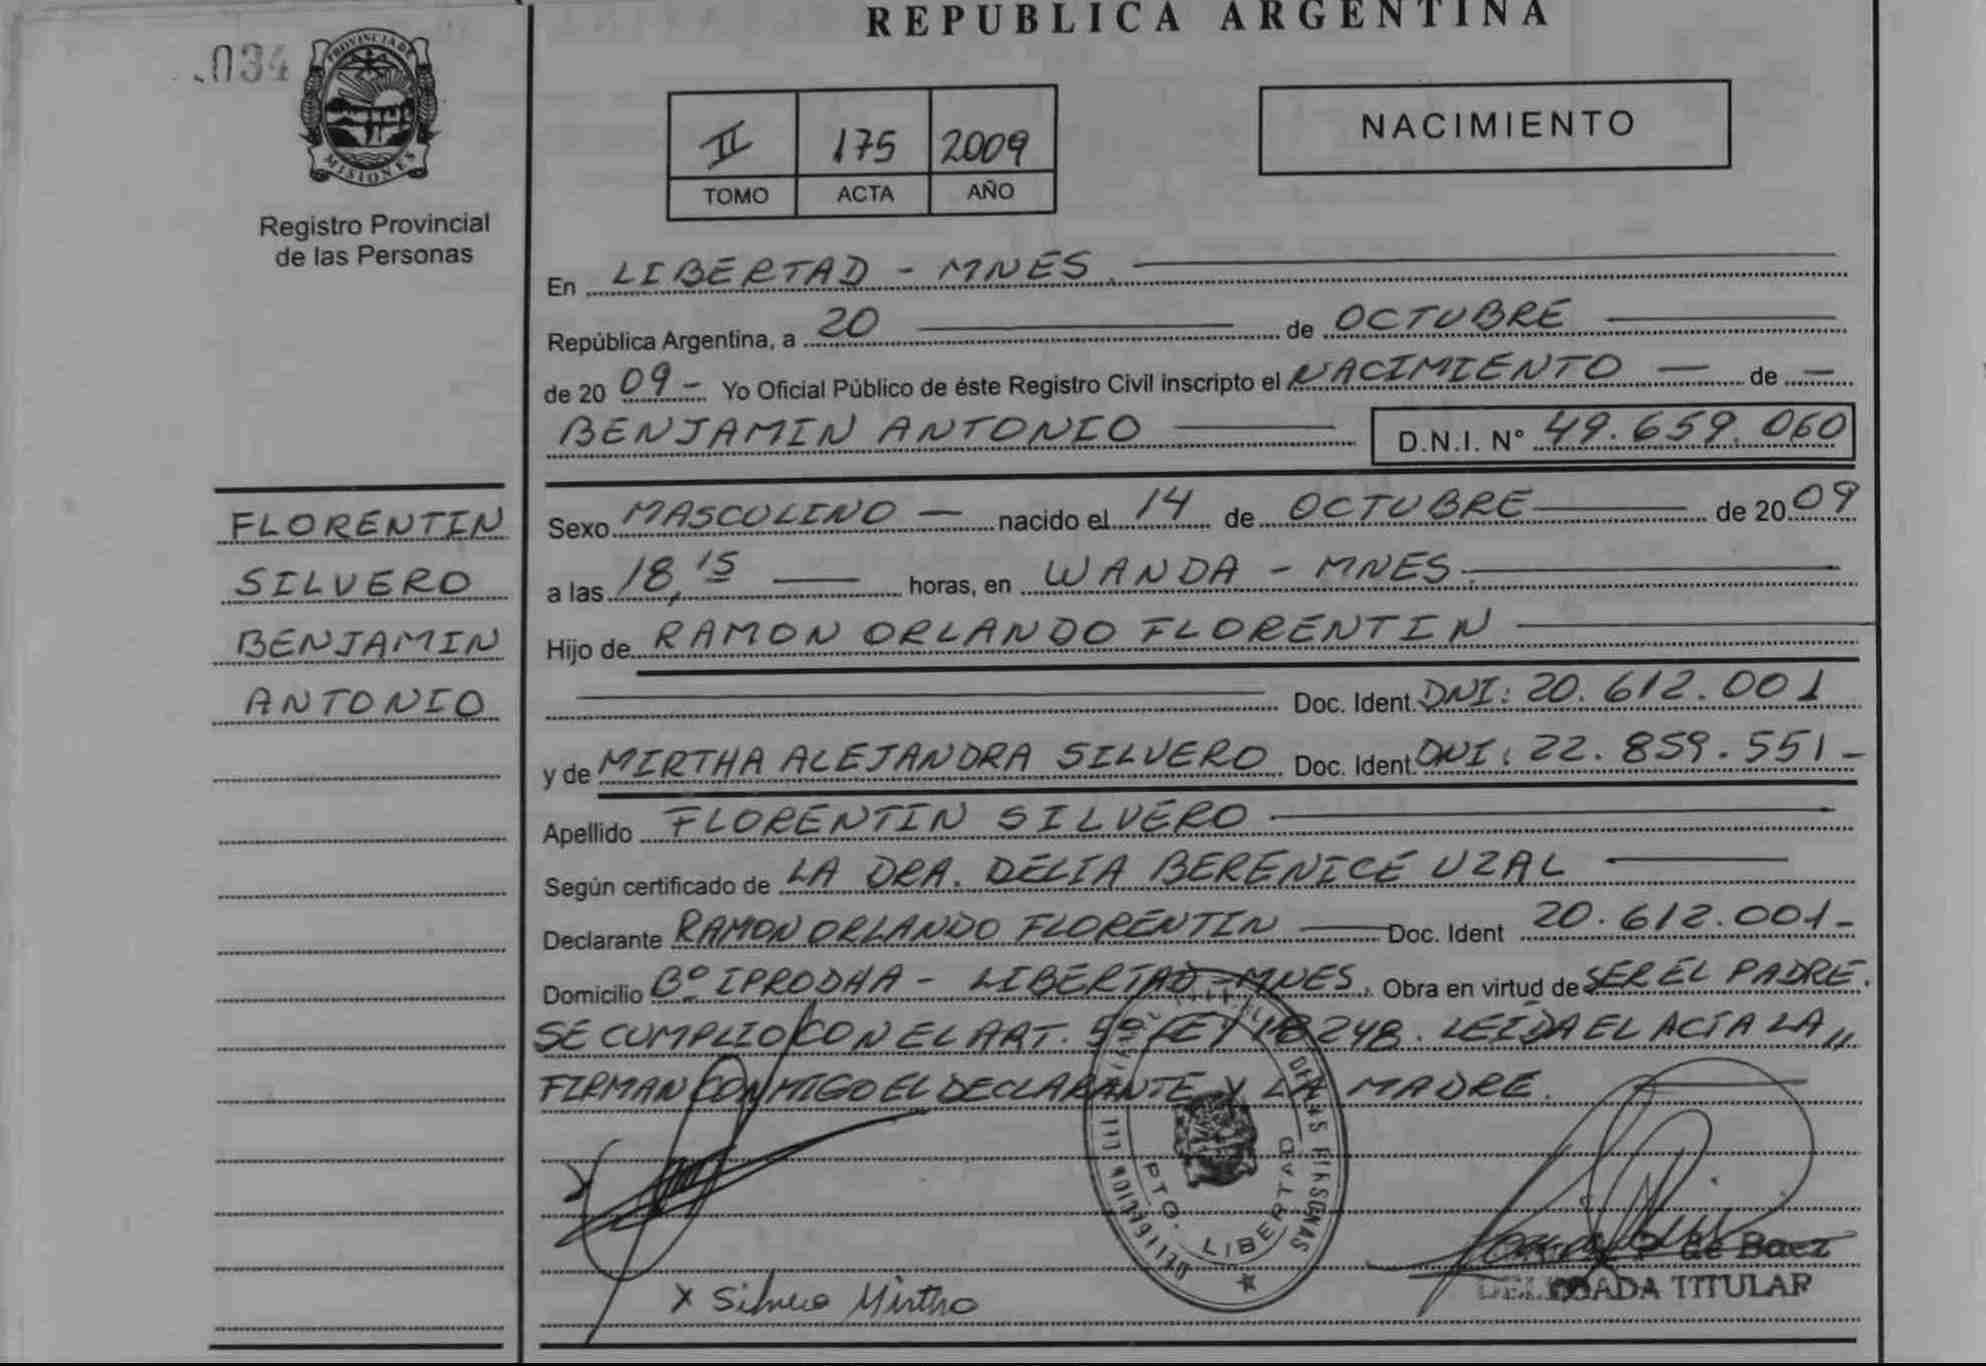 REPUBLICA ARGENTINA
034
PROVINCIA DE
MISIONES
Registro Provincial
de las Personas
II 175 2009
TOMO ACTA AÑO
NACIMIENTO
En LIBERTAD - MNES.
República Argentina, a 20 de OCTUBRE
de 20 09 - Yo Oficial Público de éste Registro Civil inscripto el NACIMIENTO — de —
BENJAMIN ANTONIO D.N.I. N° 49.659.060
FLORENTIN
SILVERO
BENJAMIN
ANTONIO
Sexo MASCULINO — nacido el 14 de OCTUBRE de 20 09
a las 18,15 — horas, en WANDA - MNES.
Hijo de RAMON ORLANDO FLORENTIN
Doc. Ident. DNI: 20.612.001
y de MIRTHA ALEJANDRA SILVERO Doc. Ident. DNI: 22.859.551 -
Apellido FLORENTIN SILVERO
Según certificado de LA DRA. DELIA BERENICE UZAL
Declarante RAMON ORLANDO FLORENTIN — Doc. Ident 20.612.001 -
Domicilio B° IPRODHA - LIBERTAD - MNES. Obra en virtud de SER EL PADRE.
SE CUMPLIO CON EL ART. 5º LEY 18248. LEIDA EL ACTA LA ,,
FIRMAN CONMIGO EL DECLARANTE Y LA MADRE.
DE LAS PERSONAS
PTO. LIBERTAD
X Silvero Mirtha
de Baez
DELEGADA TITULAR